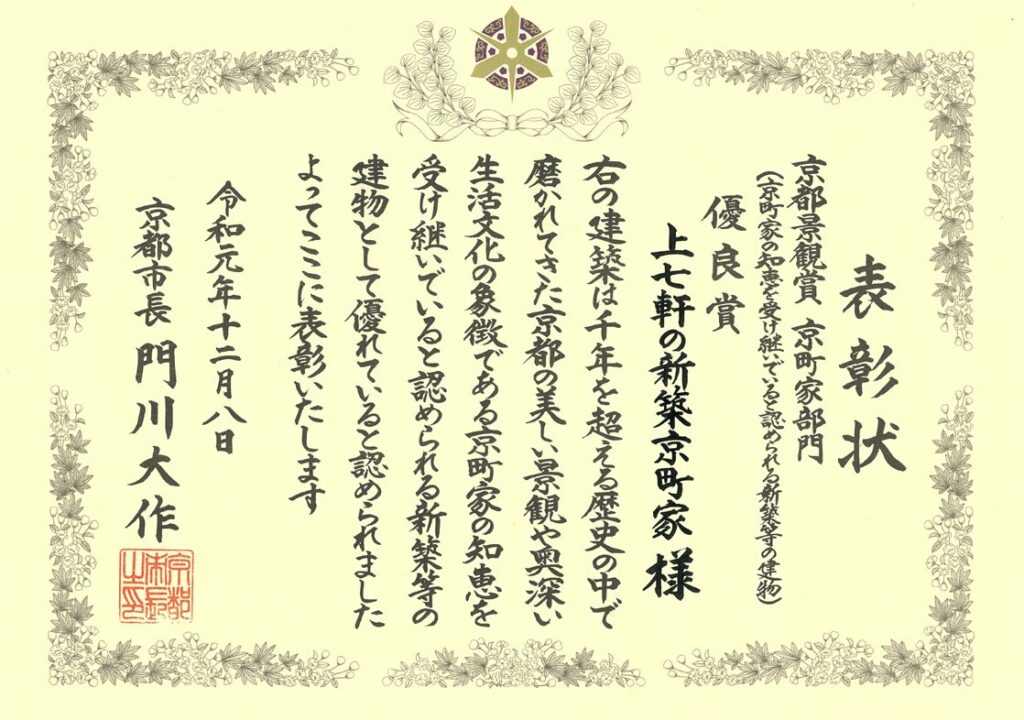 表彰状
京都景観賞 京町家部門
(京町家の知恵を受け継いでいると認められる新築等の建物)
優良賞
上七軒の新築京町家 様
右の建築は千年を超える歴史の中で
磨かれてきた京都の美しい景観や奥深い
生活文化の象徴である京町家の知恵を
受け継いでいると認められる新築等の
建物として優れていると認められました
よってここに表彰いたします
令和元年十二月八日
京都市長 門川大作
京都市長之印